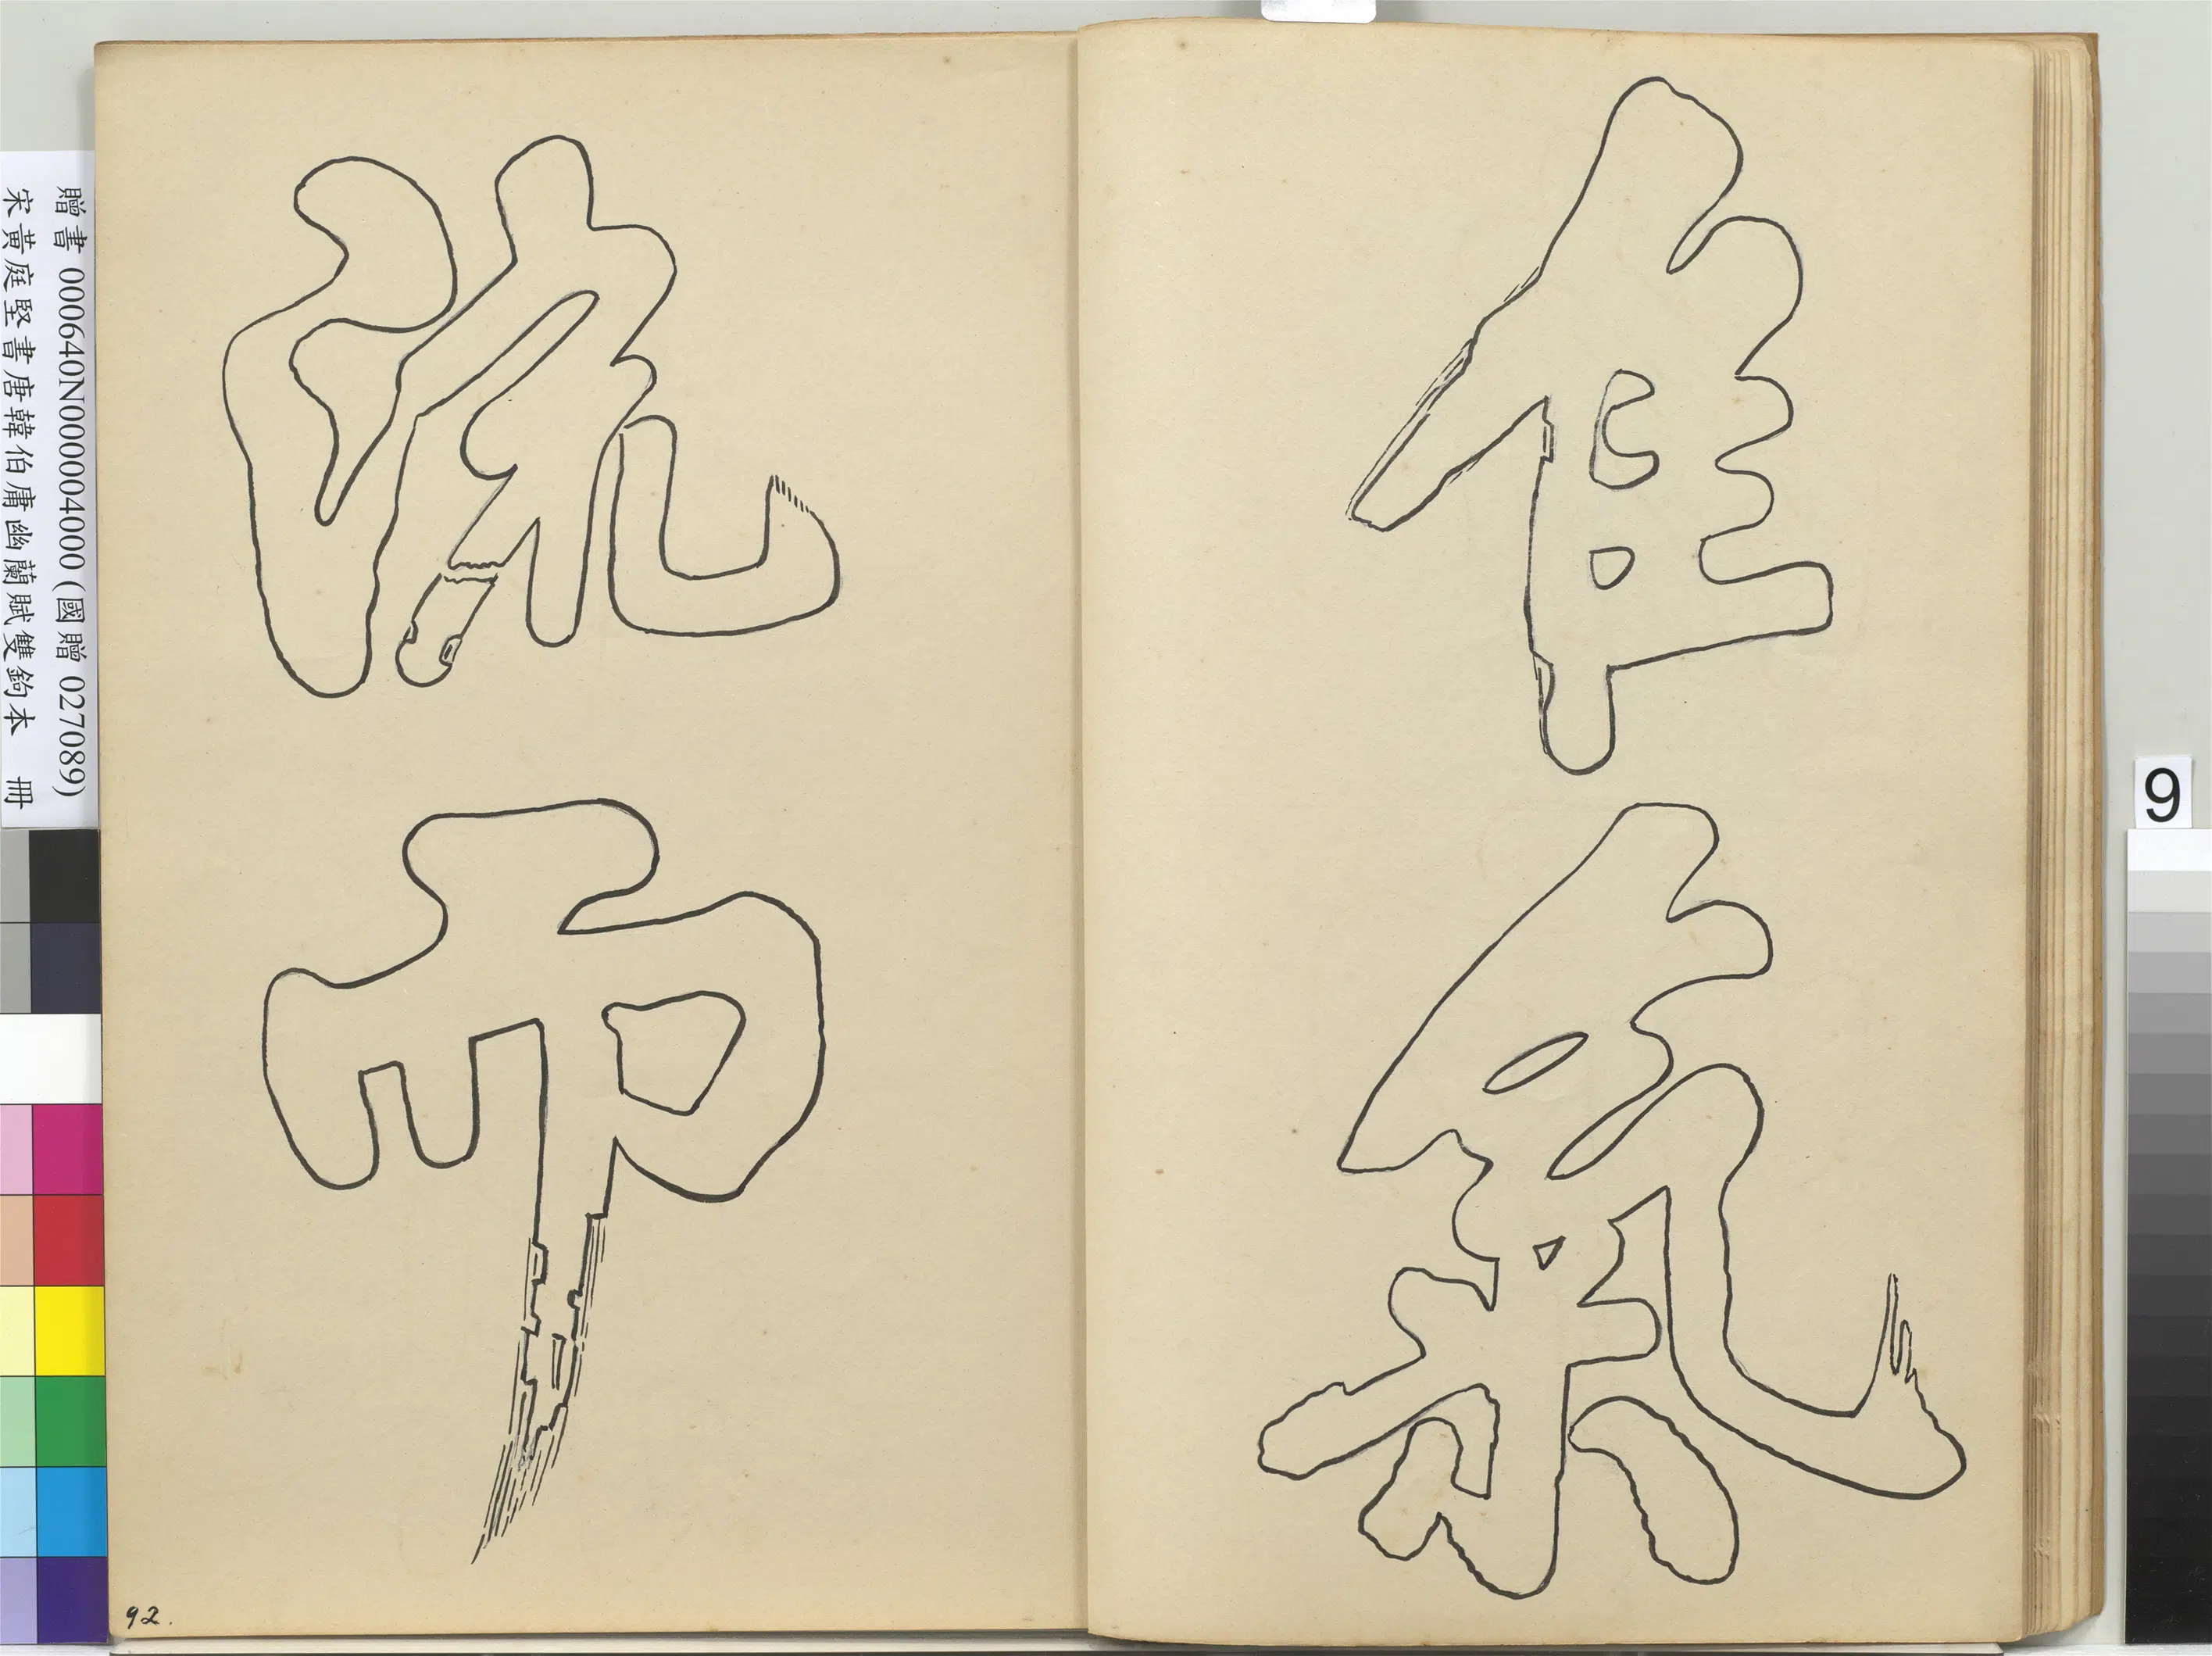 佳氣
流而
92.
贈書 000640N000004000 (國贈 027089)
宋黃庭堅書唐韓伯庸幽蘭賦雙鉤本 冊
9